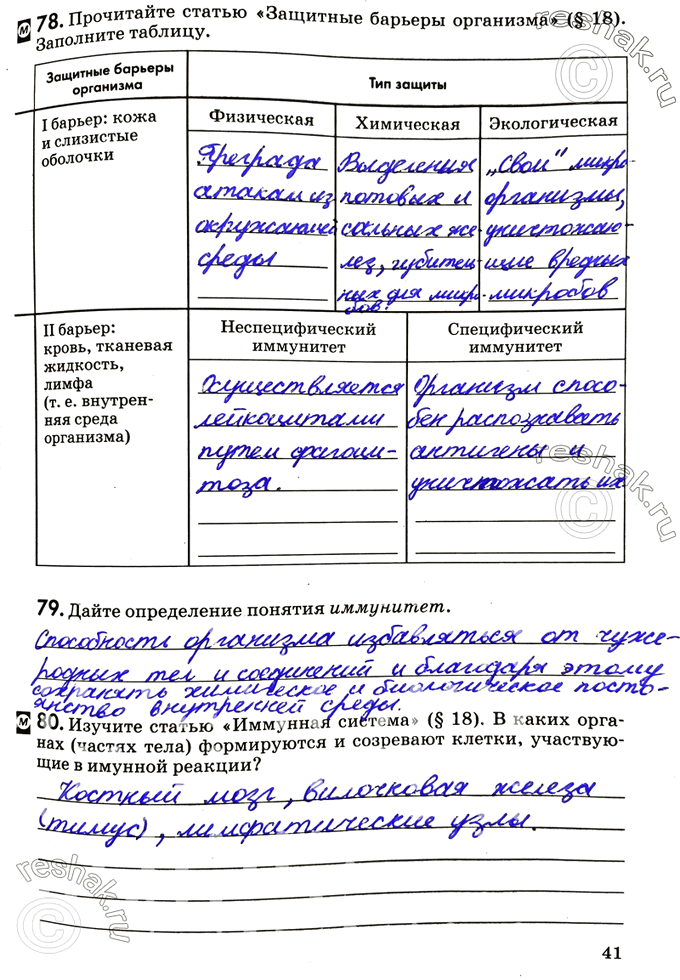 78. Прочитайте статью «Защитные барьеры организма» (§ 18).
Заполните таблицу.
Защитные барьеры
организма
Тип защиты
I барьер: кожа
и слизистые
оболочки
Физическая
Химическая
Экологическая
Преграда
атакам из
окружающей
среды
Выделения
потовых и
сальных же-
лез, губитель-
ных для микро-
бов.
„Свои" микро-
организмы,
уничтожаю-
щие вредных
микробов
II барьер:
кровь, тканевая
жидкость,
лимфа
(т. е. внутрен-
няя среда
организма)
Неспецифический
иммунитет
Специфический
иммунитет
Осуществляется
лейкоцитами
путем фагоци-
тоза.
Организм спосо-
бен распознавать
антигены и
уничтожать их
79. Дайте определение понятия иммунитет.
Способность организма избавляться от чуже-
родных тел и соединений и благодаря этому
сохранять химическое и биологическое посто-
янство внутренней среды.
М 80. Изучите статью «Иммунная система» (§ 18). В каких орга-
нах (частях тела) формируются и созревают клетки, участвую-
щие в имунной реакции?
Костный мозг, вилочковая железа
(тимус), лимфатические узлы.
41
reshak.ru
reshak.ru
reshak.ru